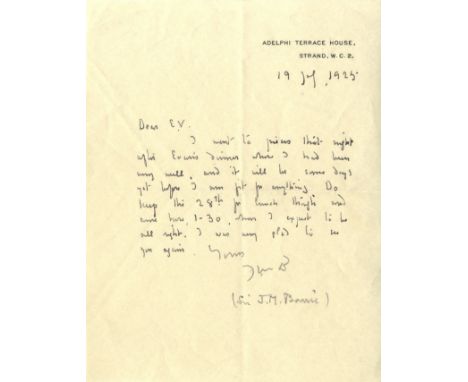 ADELPHI TERRACE HOUSE,
STRAND. W.C. 2.
19 July, 1925
Dear E.V.
I went to pieces that night
after Evans dinner where I had been
very well, and it will be some days
yet before I am fit for anything. Do
keep the 28th for lunch though and
come here, 1-30, when I expect to be
all right. I was very glad to see
you again.
Yours
B
(Sir J.M. Barrie)